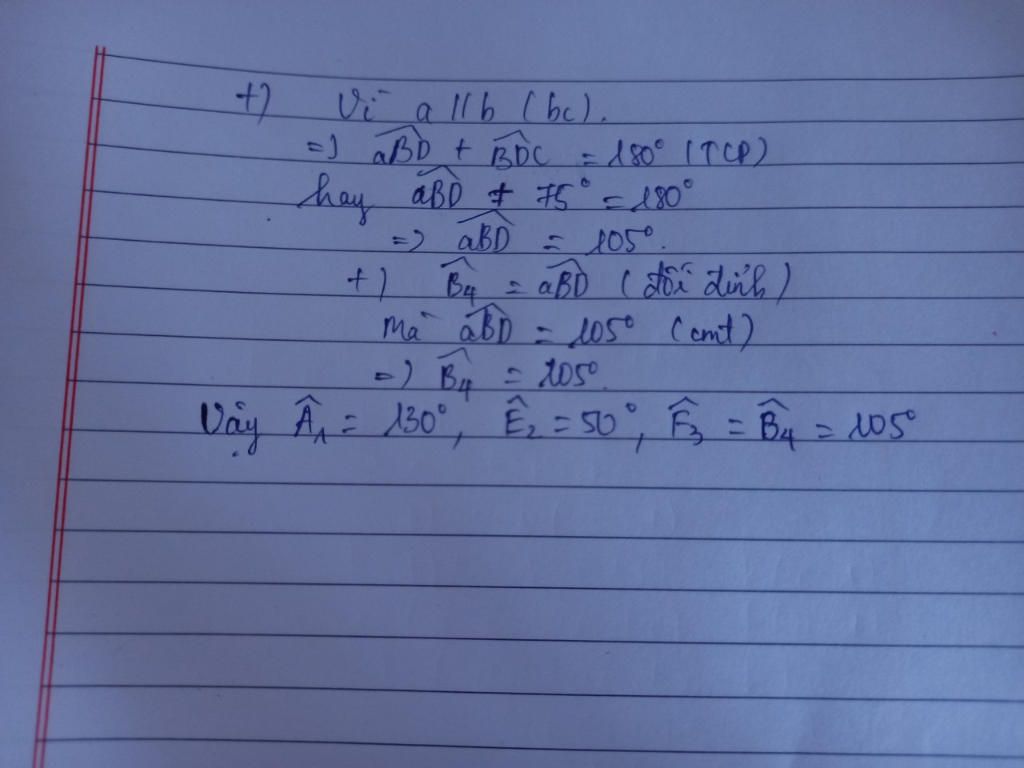 +) Vì a // b (bc).
=) aB̂D + BD̂C = 180° (TCP)
hay aB̂D + 75° = 180°
=) aB̂D = 105°.
+) B̂4 = aB̂D (đối đỉnh)
Mà aB̂D = 105° (cmt)
=) B̂4 = 105°.
Vậy Â1 = 130°, Ê2 = 50°, F̂3 = B̂4 = 105°